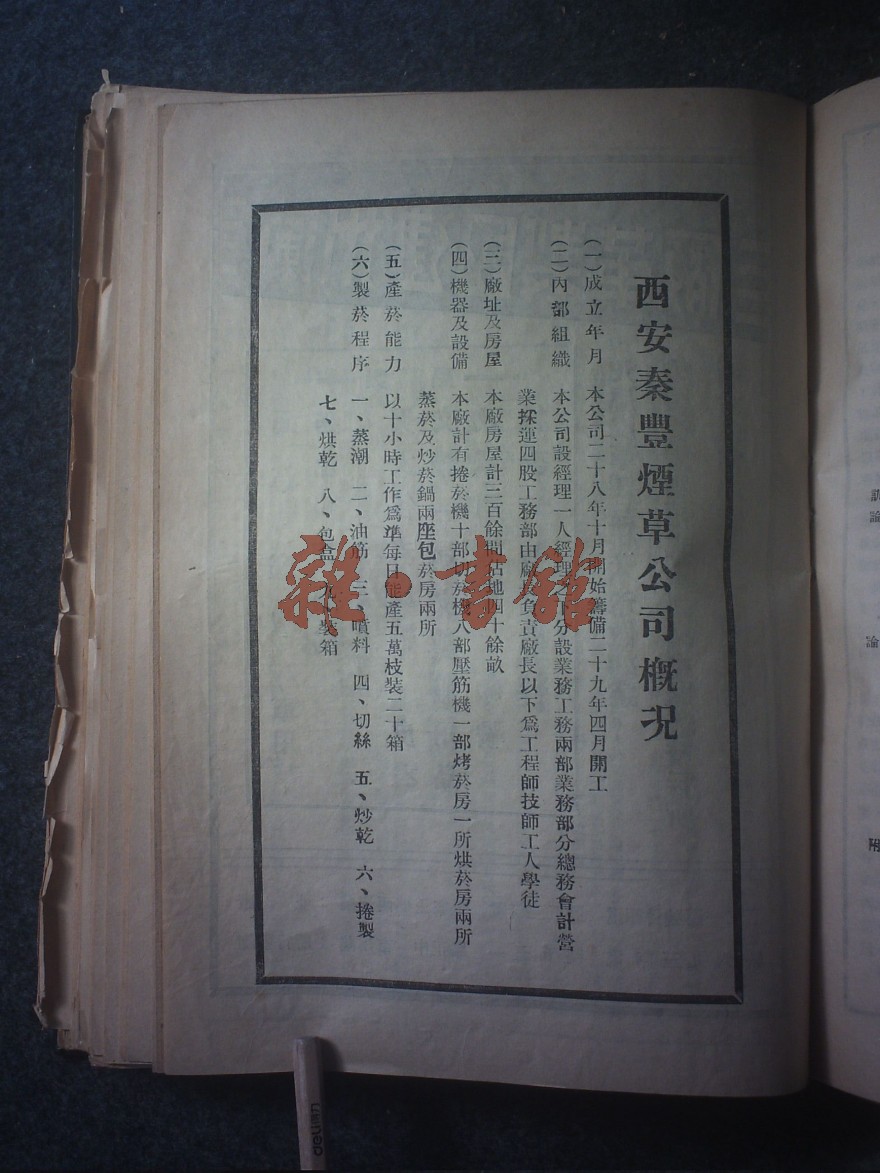 西安秦豐煙草公司概況
(一)成立年月 本公司二十八年十月開始籌備二十九年四月開工
(二)內部組織 本公司設經理一人經理以下分設業務工務兩部業務部分總務會計營
業採運四股工務部由廠長負責廠長以下爲工程師技師工人學徒
(三)廠址及房屋 本廠房屋計三百餘間佔地四十餘畝
(四)機器及設備 本廠計有捲菸機十部切菸機八部壓筋機一部烤菸房一所烘菸房兩所
蒸菸及炒菸鍋兩座包菸房兩所
(五)產菸能力 以十小時工作爲準每日能產五萬枝裝二十箱
(六)製菸程序 一、蒸潮 二、油筋 三、噴料 四、切絲 五、炒乾 六、捲製
七、烘乾 八、包盒 裝箱
雜·書館
論
論
附
deli